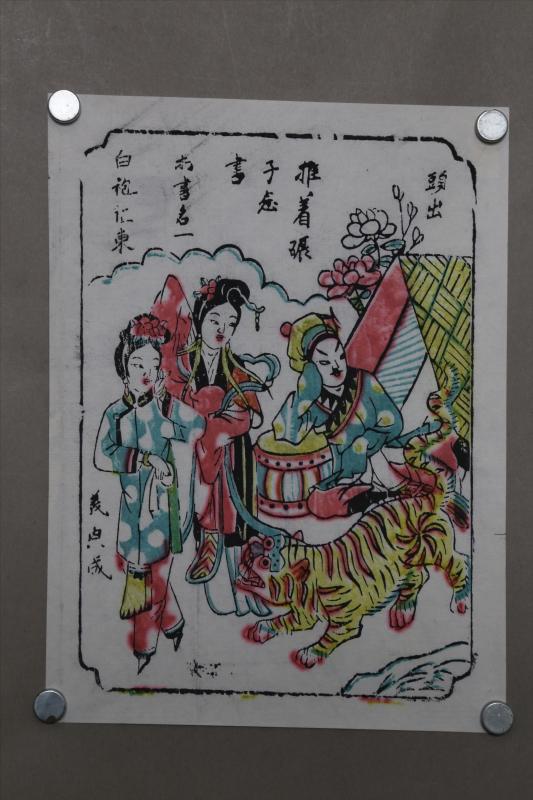 頭出
推着
子
書
書名一
白袍征東
義興成